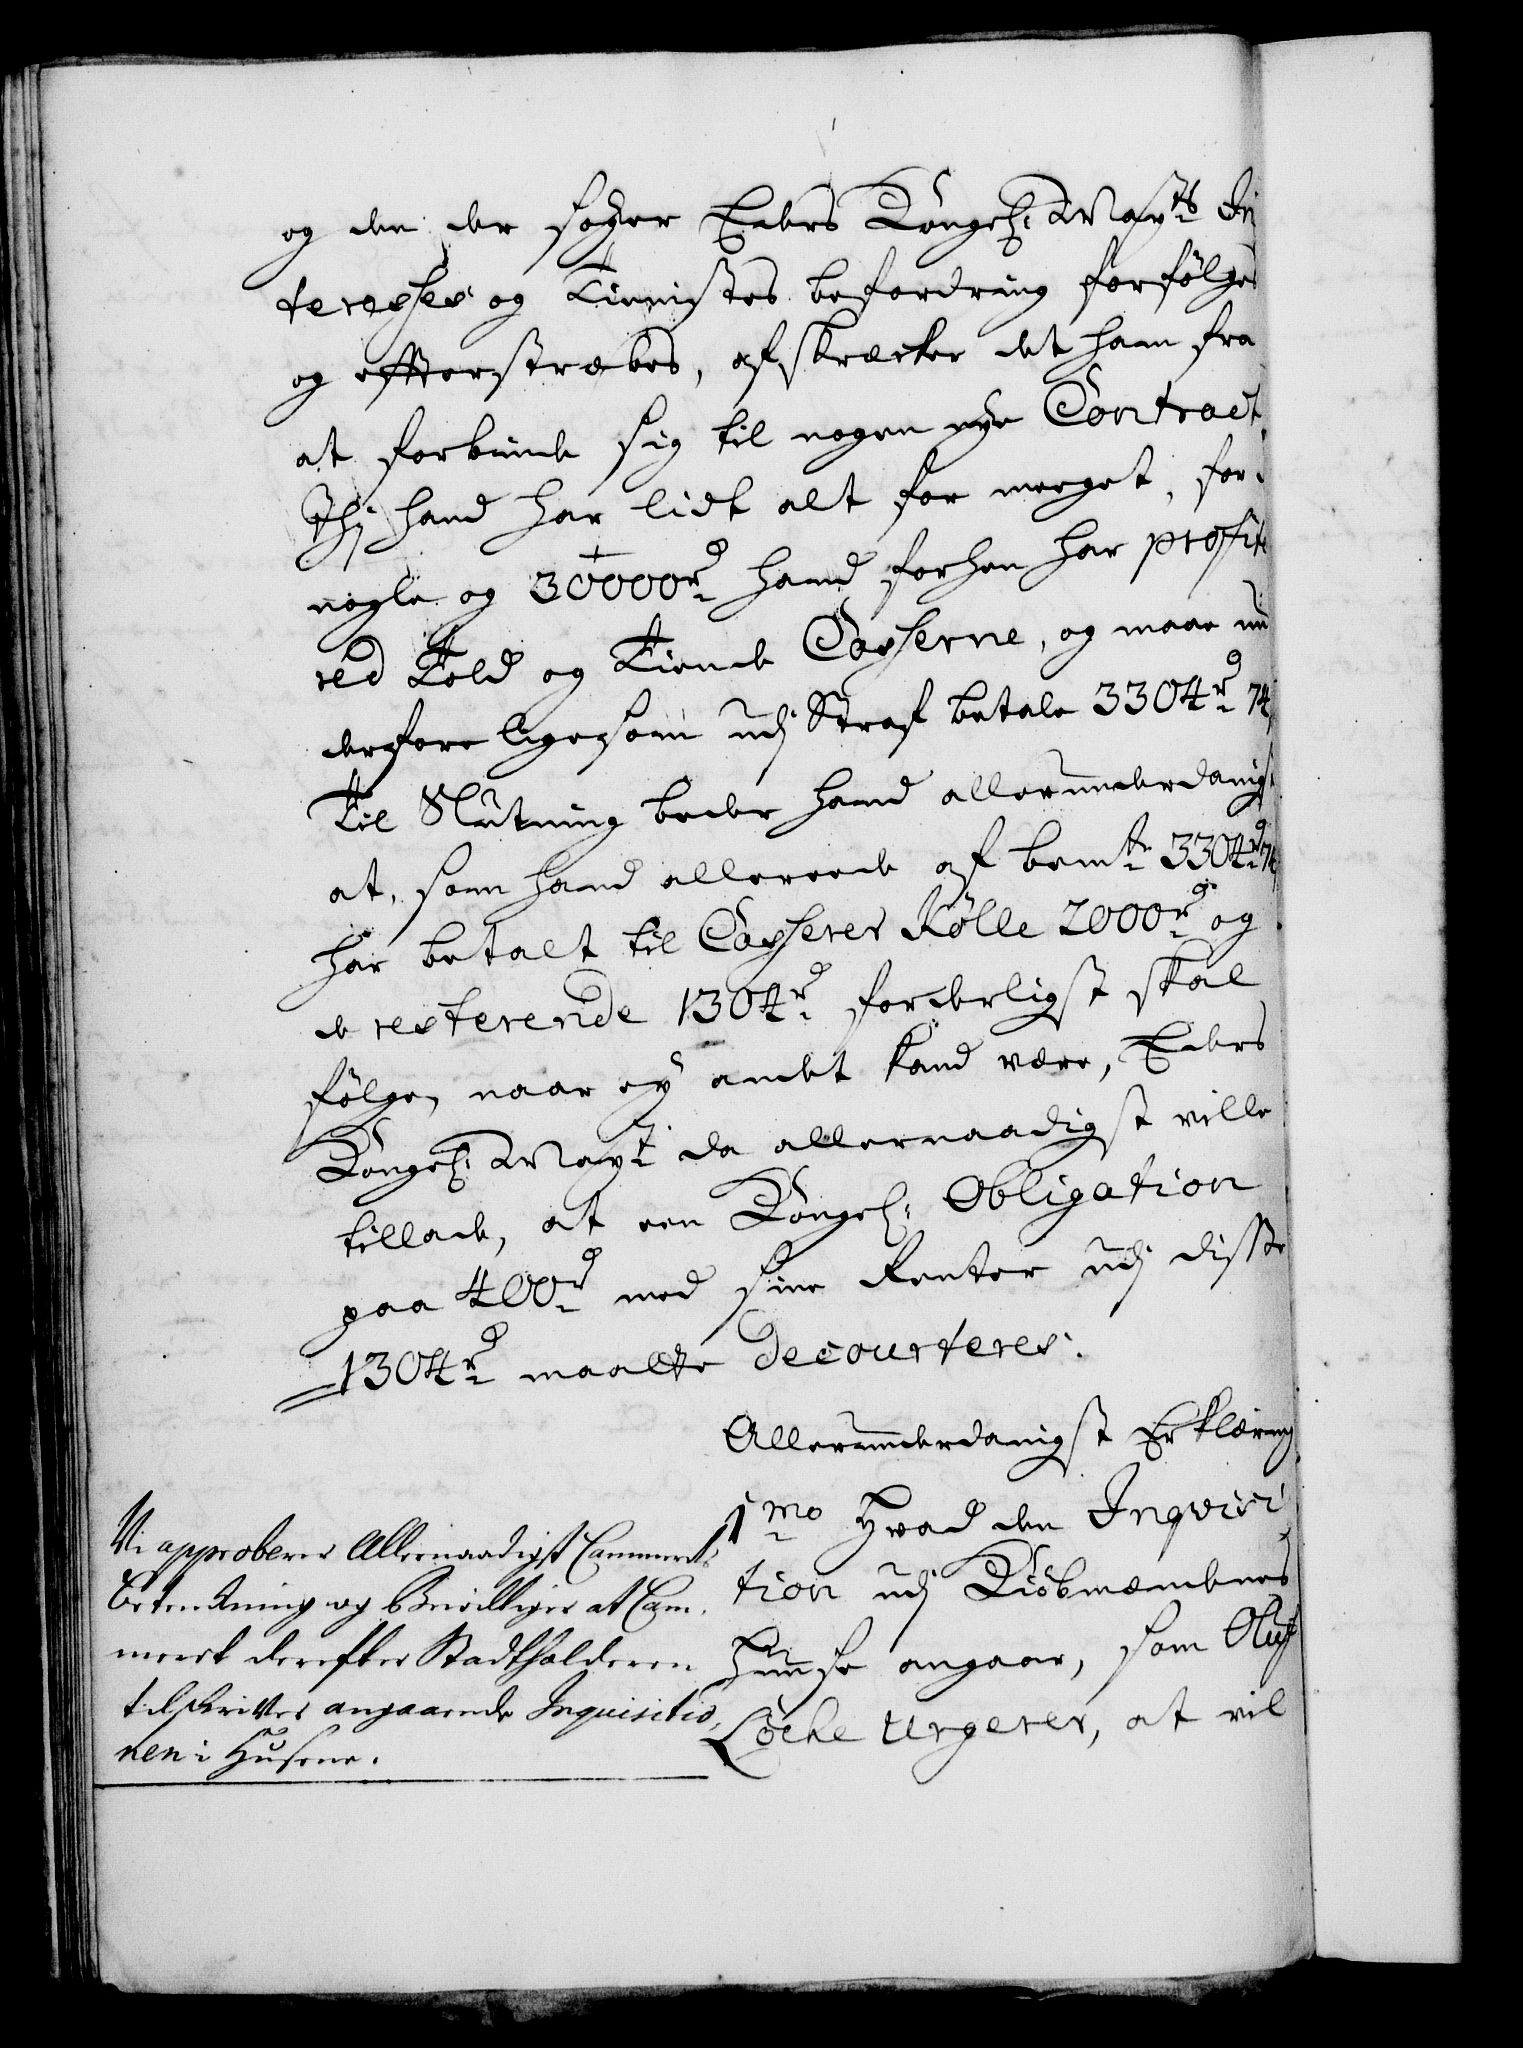 og den der søger Eders Kongel: Mayts In
teresses og Tienistes befordring forfølges
og effterstræbes, afskrecker det ham fra
at forbinde sig til nogen nye Contract,
Thj hand har lidt alt for meeget, for
nogle og 30000rd hand forhen har profite
red Told og Tiende Casserne, og maae nu
derfore ligesom udj Straf betale 3304rd 74
Til Slutning beder hand allerunderdanigst
at, som hand allereede af bemte 3304rd 74
har betalt til Casserer Kølle 2000rd og
de resterende 1304rd forderligst skal
følge, naar ey andet kand være, Eders
Kongel: Mayt da allernaadigst ville
tillade, at een Kongel: Obligation
paa 400rd med sine Renter udj disse
1304rd maatte decourteres.
Allerunderdanigst Erklæring
1mo Hvad den Inqvisi
tion udj Kiøbmændenes
Huuse angaar, som Oluf
Løcke urgerer, at vil
Vi approberer Allernaadigst Cammerets
betenkning og bevilliger at Cam,
meret derefter Stadtholderen
tilskriver angaaende Inquisitio,
nen i Husene.